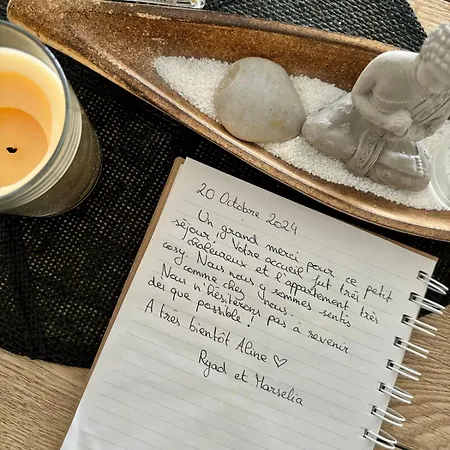 20 Octobre 2024
Un grand merci pour ce petit
séjour! Votre accueil fut très
chaleureux et l'appartement très
cosy. Nous nous y sommes sentis
comme chez nous.
Nous n'hésiterons pas à revenir
dès que possible!
A très bientôt Aline ♡
Ryad et Marselia